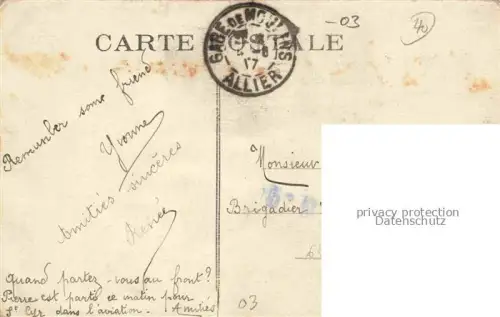 -03
40
CARTE POSTALE
GARE DE MOULINS
17
ALLIER
Remember some friend
Yvonne
Amitiés sincères
Renée
à
Monsieur
Brigadier
privacy protection
Datenschutz
Quand partez-vous au front?
Pierre est parti ce matin pour
St Cyr dans l'aviation. Amitiés
03